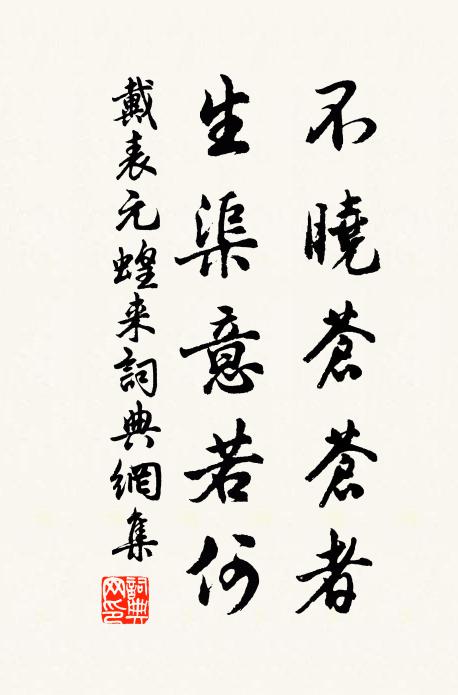 不曉蒼蒼者
生渠意若何
戴表元蝗来詞典網集
詞典網印